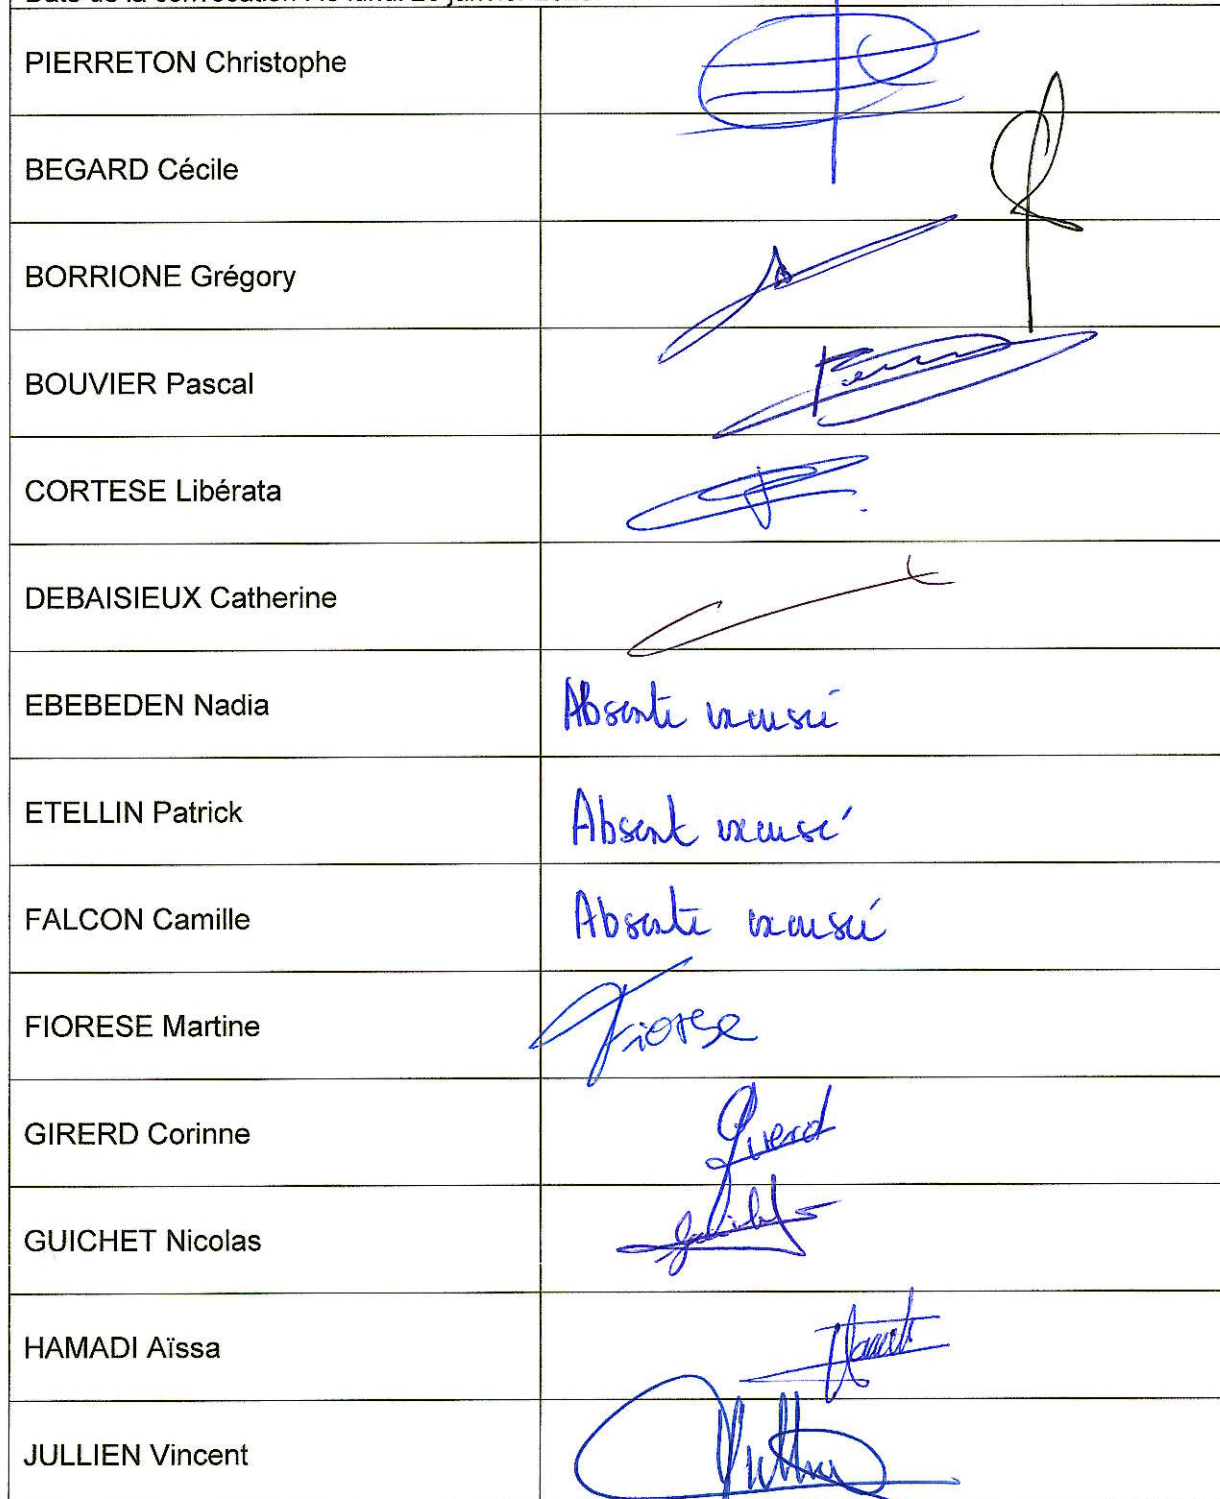 PIERRETON Christophe
BEGARD Cécile
BORRIONE Grégory
BOUVIER Pascal
CORTESE Libérata
DEBAISIEUX Catherine
EBEBEDEN Nadia Absente excusée
ETELLIN Patrick Absent excusé
FALCON Camille Absente excusée
FIORESE Martine Fiorese
GIRERD Corinne Girerd
GUICHET Nicolas
HAMADI Aïssa
JULLIEN Vincent